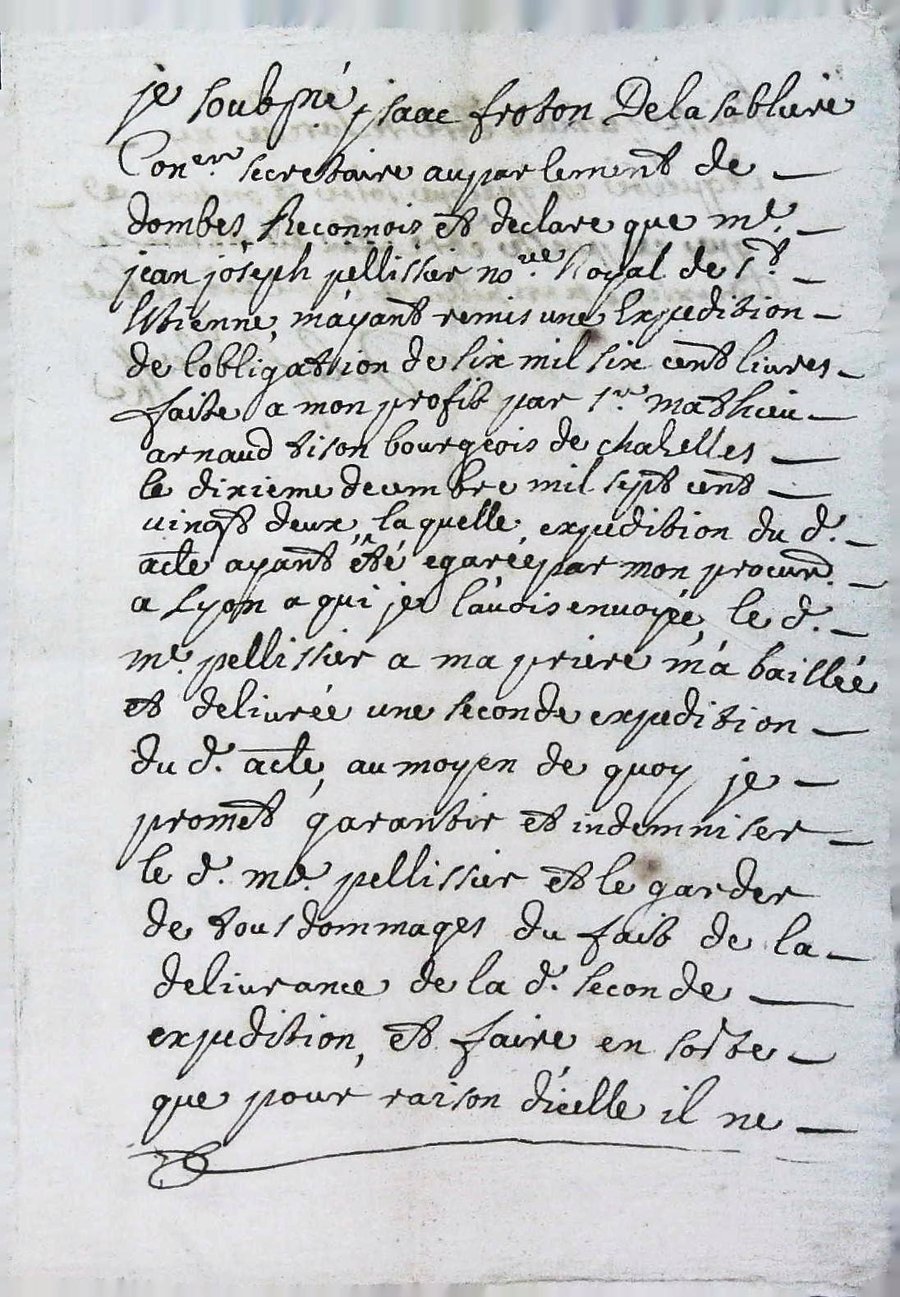 je soubsné jsaac froton De la sabliere
Con.ere secretaire au parlement de
dombes, Reconnois et declare que m.e
jean joseph pellissier no.re Royal de S.t
Estienne, m'ayant remis une Expedition
de l'obligation de six mil six cent livres
faite a mon profit par s.r mathieu
arnaud tison bourgeois de chazelles
le dixieme decembre mil sept cent
vingt deux, la quelle expedition du d.
acte ayant été egarée par mon procur.
a Lyon a qui je l'avois envoyée, le d.
m.e pellissier a ma priere m'a baillée
et delivrée une seconde expedition
du d. acte, au moyen de quoy je
promet garantir et indemniser
le d. m.e pellissier et le garder
de tous dommages du fait de la
delivrance de la d. seconde
expedition, et faire en sorte
que pour raison d'icelle il ne